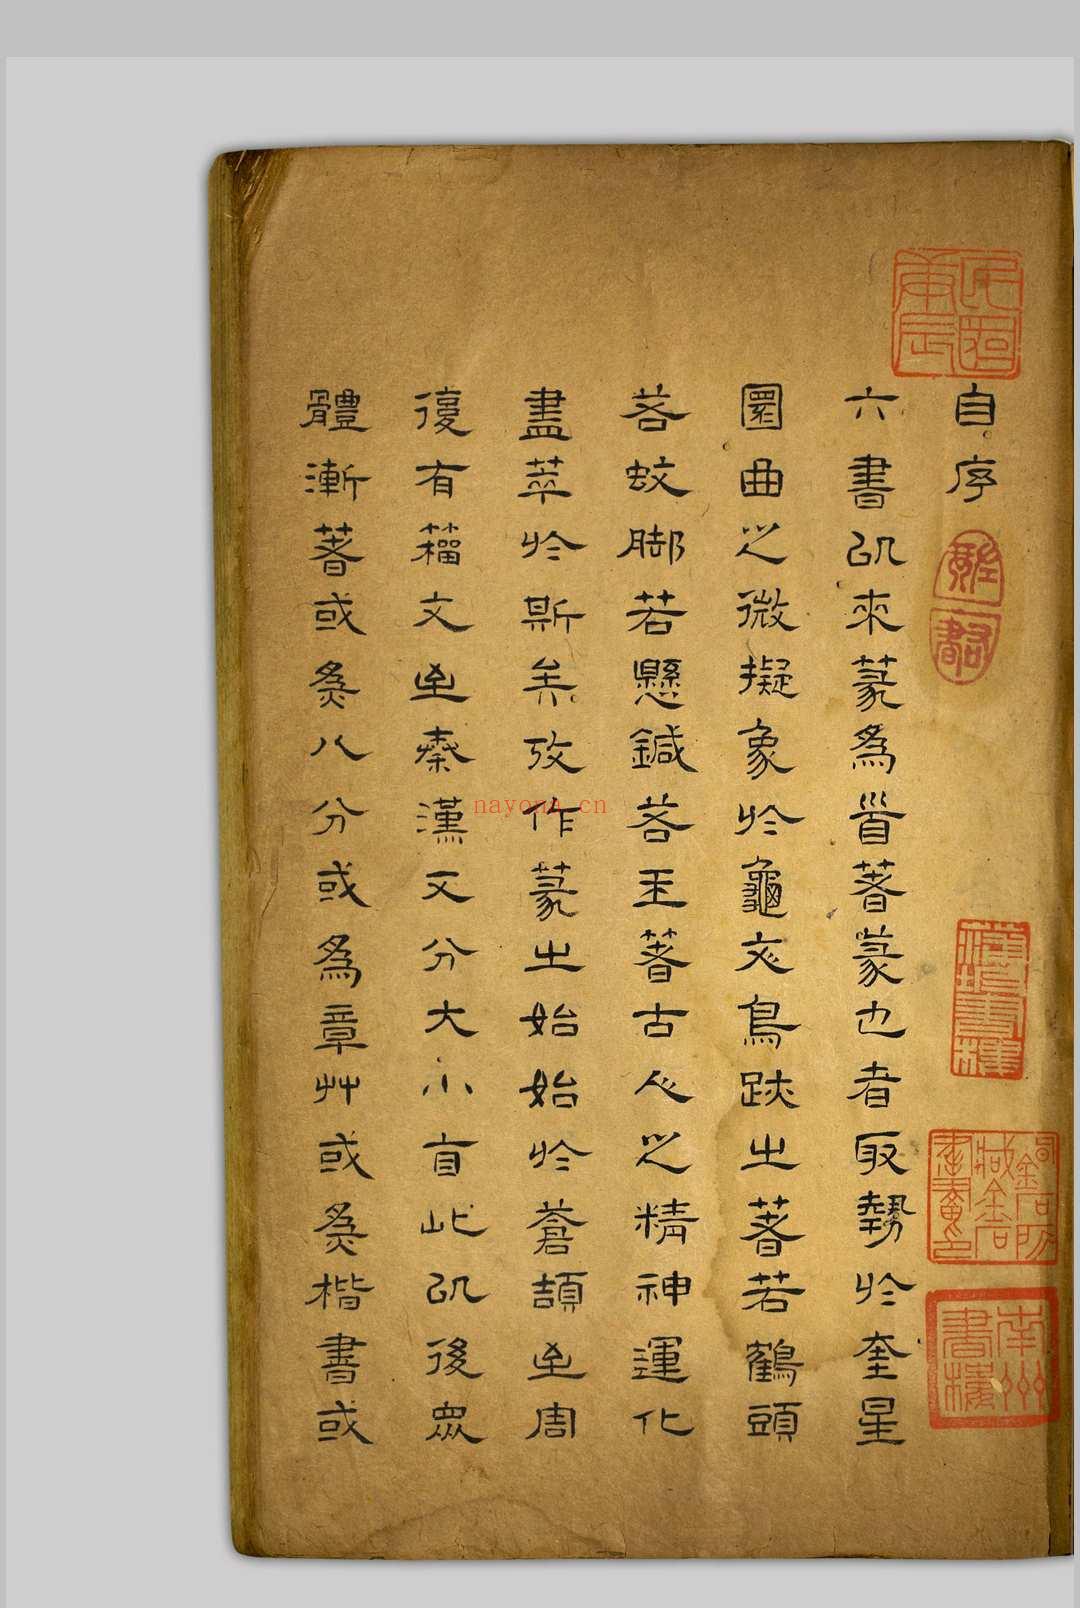 自序
六書㠯來篆爲首著篆也者取勢於奎星
圜曲之微擬象於龜文鳥跡之著若鶴頭
若蚊脚若懸鍼若玉著古人之精神運化
盡萃於斯矣攷作篆之始始於蒼頡至周
復有籀文至秦漢又分大小盲此㠯後眾
體漸著或為八分或爲章艸或為楷書或
nayona.cn
南州書樓